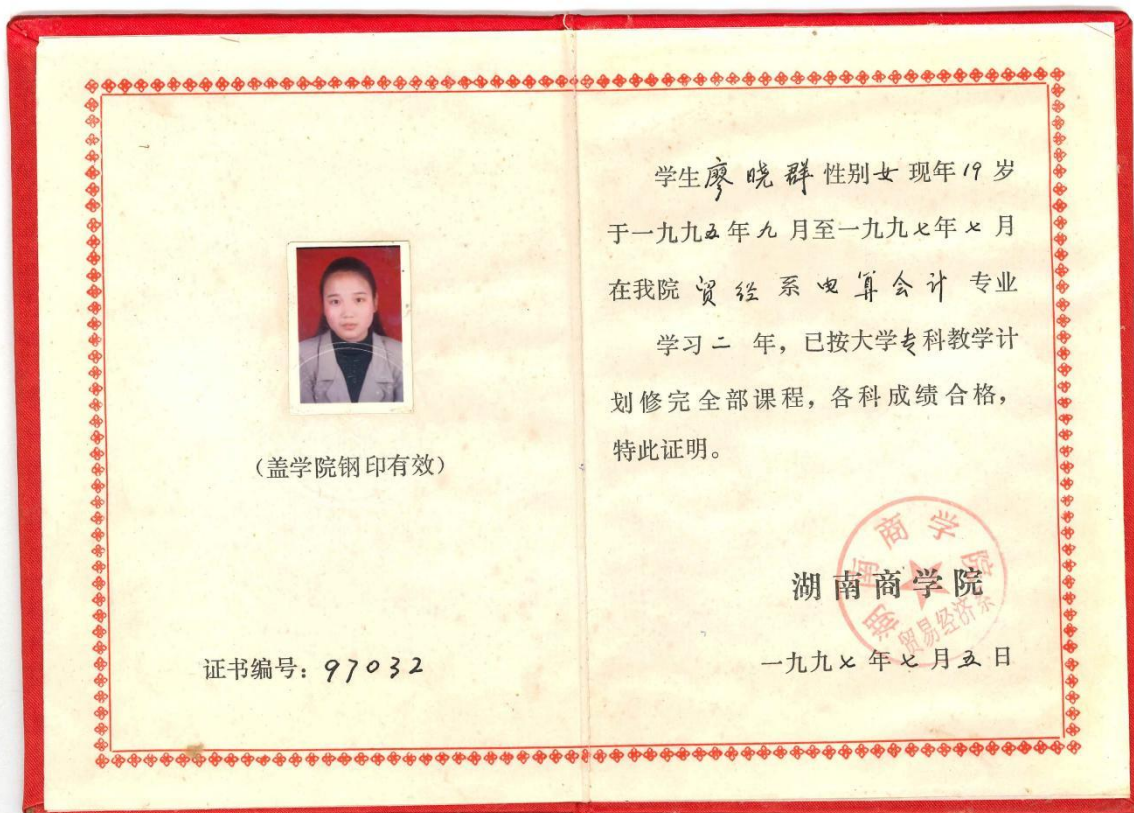 (盖学院钢印有效)
证书编号：97032
学生廖晓群性别女现年19岁
于一九九五年九月至一九九七年七月
在我院贸经系电算会计专业
学习二年，已按大学专科教学计
划修完全部课程，各科成绩合格，
特此证明。
湖南商学院
湖南商学院
贸易经济系
一九九七年七月五日